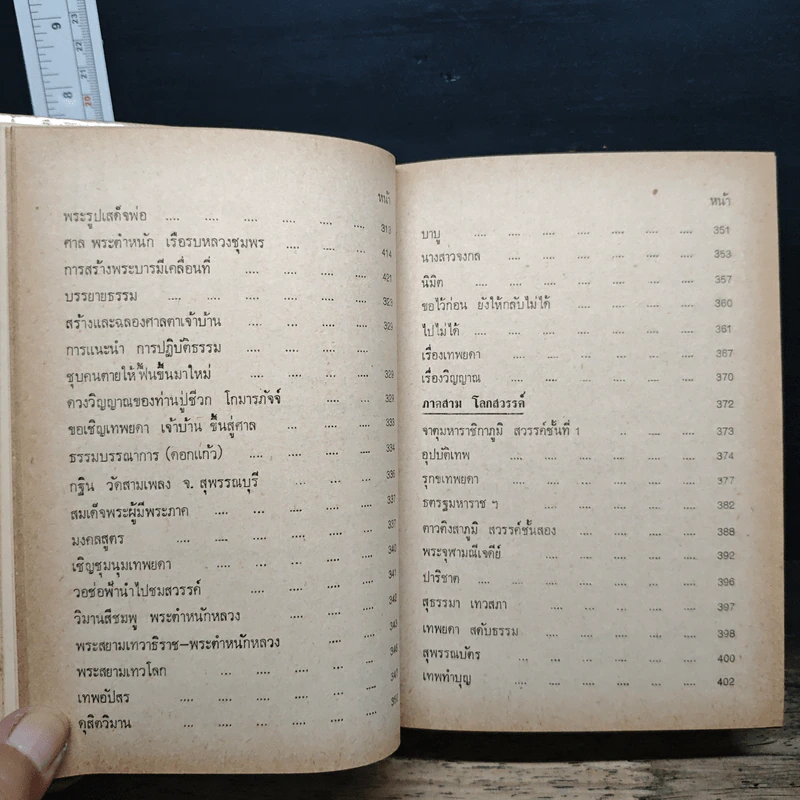 9
23
22
8
20
หน้า
พระรูปเสด็จพ่อ .... .... .... .... .... .... 313
ศาล พระตำหนัก เรือรบหลวงชุมพร .... .... .... 414
การสร้างพระบารมีเคลื่อนที่ .... .... .... .... 421
บรรยายธรรม .... .... .... .... .... .... 328
สร้างและฉลองศาลตาเจ้าบ้าน .... .... .... .... 329
การแนะนำ การปฏิบัติธรรม .... .... .... ....
ชุบคนตายให้ฟื้นขึ้นมาใหม่ .... .... .... .... 329
ดวงวิญญาณของท่านปู่ชีวก โกมารภัจจ์ .... .... .... 329
ขอเชิญเทพยดา เจ้าบ้าน ขึ้นสู่ศาล .... .... .... 333
ธรรมบรรณาการ (ดอกแก้ว) .... .... .... .... 334
กฐิน วัดสามเพลง จ. สุพรรณบุรี .... .... .... 336
สมเด็จพระผู้มีพระภาค .... .... .... .... 337
มงคลสูตร .... .... .... .... .... .... 337
เชิญชุมนุมเทพยดา .... .... .... .... .... 340
วอช่อฟ้านำไปชมสวรรค์ .... .... .... .... 341
วิมานสีชมพู พระตำหนักหลวง .... .... .... 342
พระสยามเทวาธิราช–พระตำหนักหลวง .... .... .... 345
พระสยามเทวโลก .... .... .... .... .... 346
เทพอัปสร .... .... .... .... .... 347
ดุสิตวิมาน .... .... .... .... ....
หน้า
บาบู .... .... .... .... .... .... 351
นางสาวจงกล .... .... .... .... .... 353
นิมิต .... .... .... .... .... .... 357
ขอไว้ก่อน ยังให้กลับไม่ได้ .... .... .... .... 360
ไปไม่ได้ .... .... .... .... .... .... 361
เรื่องเทพยดา .... .... .... .... .... 367
เรื่องวิญญาณ .... .... .... .... .... 370
ภาคสาม โลกสวรรค์ 372
จาตุมหาราชิกาภูมิ สวรรค์ชั้นที่ 1 .. .... .... 373
อุปบัติเทพ .... .... .... .... .... 374
รุกขเทพยดา .... .... .... .... .... 377
ธตรฐมหาราช ฯ .... .... .... .... .... 382
ดาวดึงสาภูมิ สวรรค์ชั้นสอง .... .... .... .... 388
พระจุฬามณีเจดีย์ .... .... .... .... .... 392
ปาริชาต .... .... .... .... .... .... 396
สุธรรมา เทวสภา .... .... .... .... .... 397
เทพยดา สดับธรรม .... .... .... .... 398
สุพรรณบัตร .... .... .... .... .... 400
เทพทำบุญ .... .... .... .... .... .... 402